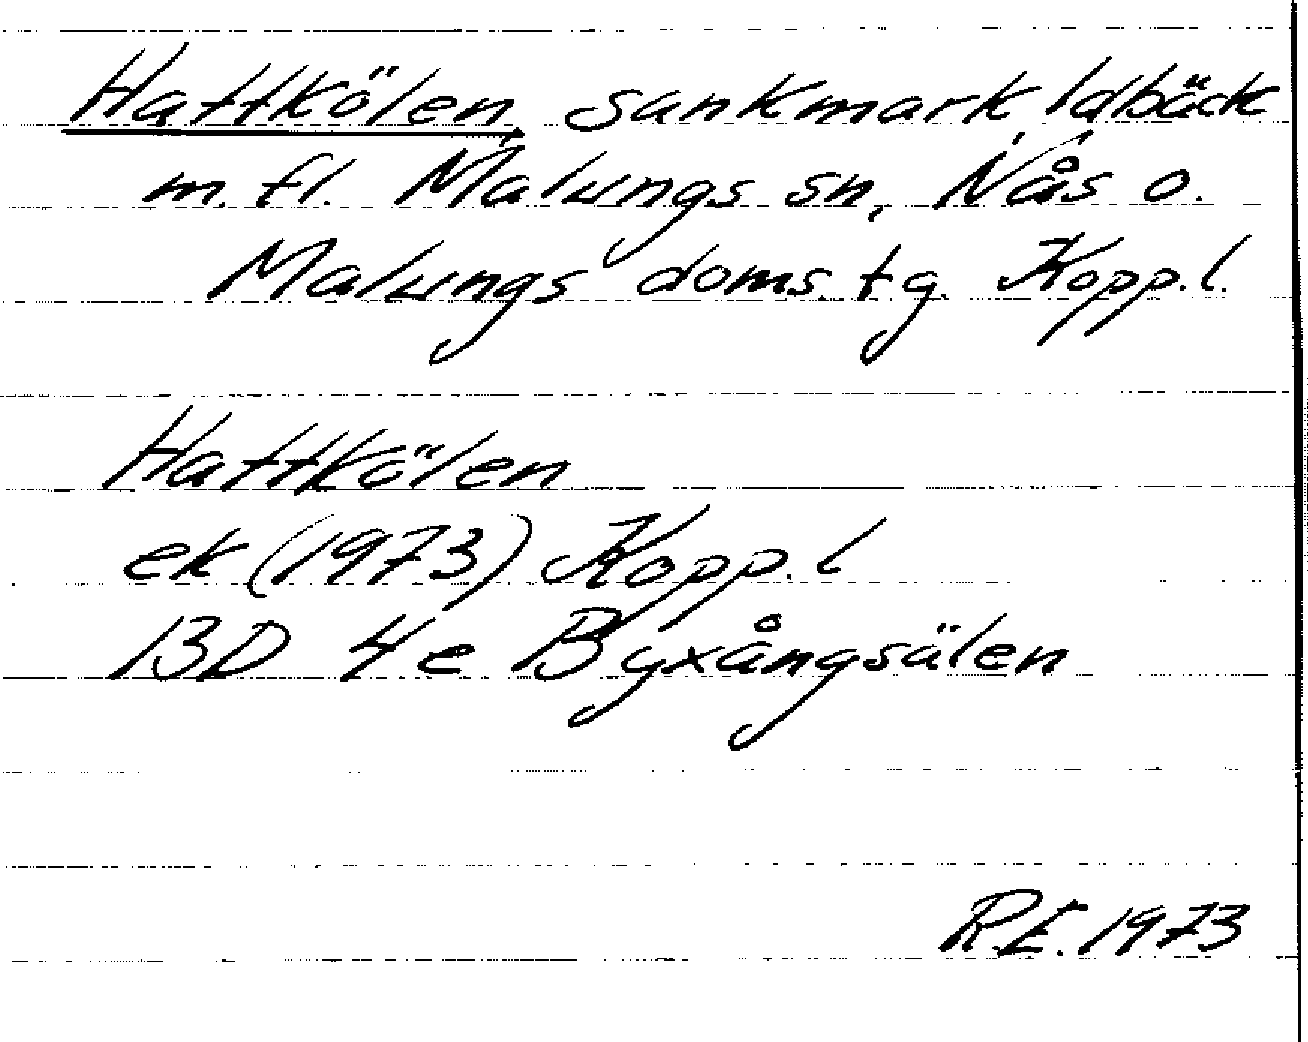 Hattkölen, sankmark, Idbäck
m. fl. Malungs sn, Nås o.
Malungs doms. tg. Kopp. l.
Hattkölen
ek (1973) Kopp. l
13D 4e Byxångsälen
R.E. 1973